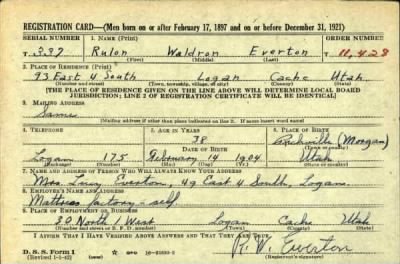 REGISTRATION CARD—(Men born on or after February 17, 1897 and on or before December 31, 1921)
SERIAL NUMBER 1. NAME (Print) ORDER NUMBER
T 337 Rulon Waldron Everton 11,428
(First) (Middle) (Last)
2. PLACE OF RESIDENCE (Print)
93 East 4 South Logan Cache Utah
(Number and street) (Town, township, village, or city) (County) (State)
[THE PLACE OF RESIDENCE GIVEN ON THE LINE ABOVE WILL DETERMINE LOCAL BOARD
JURISDICTION; LINE 2 OF REGISTRATION CERTIFICATE WILL BE IDENTICAL]
3. MAILING ADDRESS
Same
[Mailing address if other than place indicated on line 2. If same insert word same]
4. TELEPHONE 5. AGE IN YEARS 6. PLACE OF BIRTH
38 (Morgan)
DATE OF BIRTH (Town or county)
Logan 175 February 14 1904 Utah
(Mo.) (Day) (Yr.) (State or country)
7. NAME AND ADDRESS OF PERSON WHO WILL ALWAYS KNOW YOUR ADDRESS
Mrs. Everton, 49 East 4 South, Logan
8. EMPLOYER'S NAME AND ADDRESS
Mattress factory - self
9. PLACE OF EMPLOYMENT OR BUSINESS
30 North 1 West Logan Cache Utah
(Number and street or R. F. D. number) (Town) (County) (State)
I AFFIRM THAT I HAVE VERIFIED ABOVE ANSWERS AND THAT THEY ARE TRUE.
D. S. S. Form 1 GPO
(Revised 1-1-42) R. W. Everton